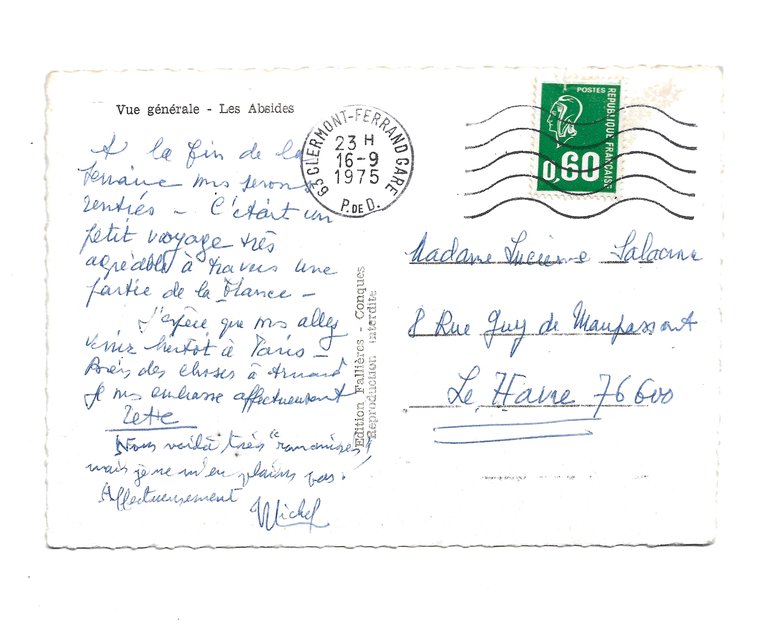 Vue générale - Les Absides
63 CLERMONT-FERRAND GARE
23 H
16-9
1975
P. DE D.
POSTES
REPUBLIQUE FRANÇAISE
0,60
A la fin de la
semaine ns serons
rentrés - C'était un
petit voyage très
agréable à travers une
partie de la France -
J'espère que ns allez
venir bientôt à Paris -
Bien des choses à Arnaud
Je ns embrasse affectueusement
Nous voilà très "romanisés"!
mais je ne m'en plains pas!
Affectueusement
Michel
Edition Fallières - Conques
Reproduction interdite
Madame Lucienne
8 Rue Guy de Maupassant
Le Havre 76600